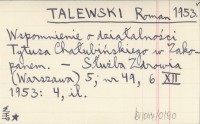 TALEWSKI Roman 1953.
Wspomnienie o działalności
Tytusa Chałubińskiego w Zako-
panem. — Służba Zdrowia
(Warszawa) 5; nr 49, 6 XII
1953: 4, il.